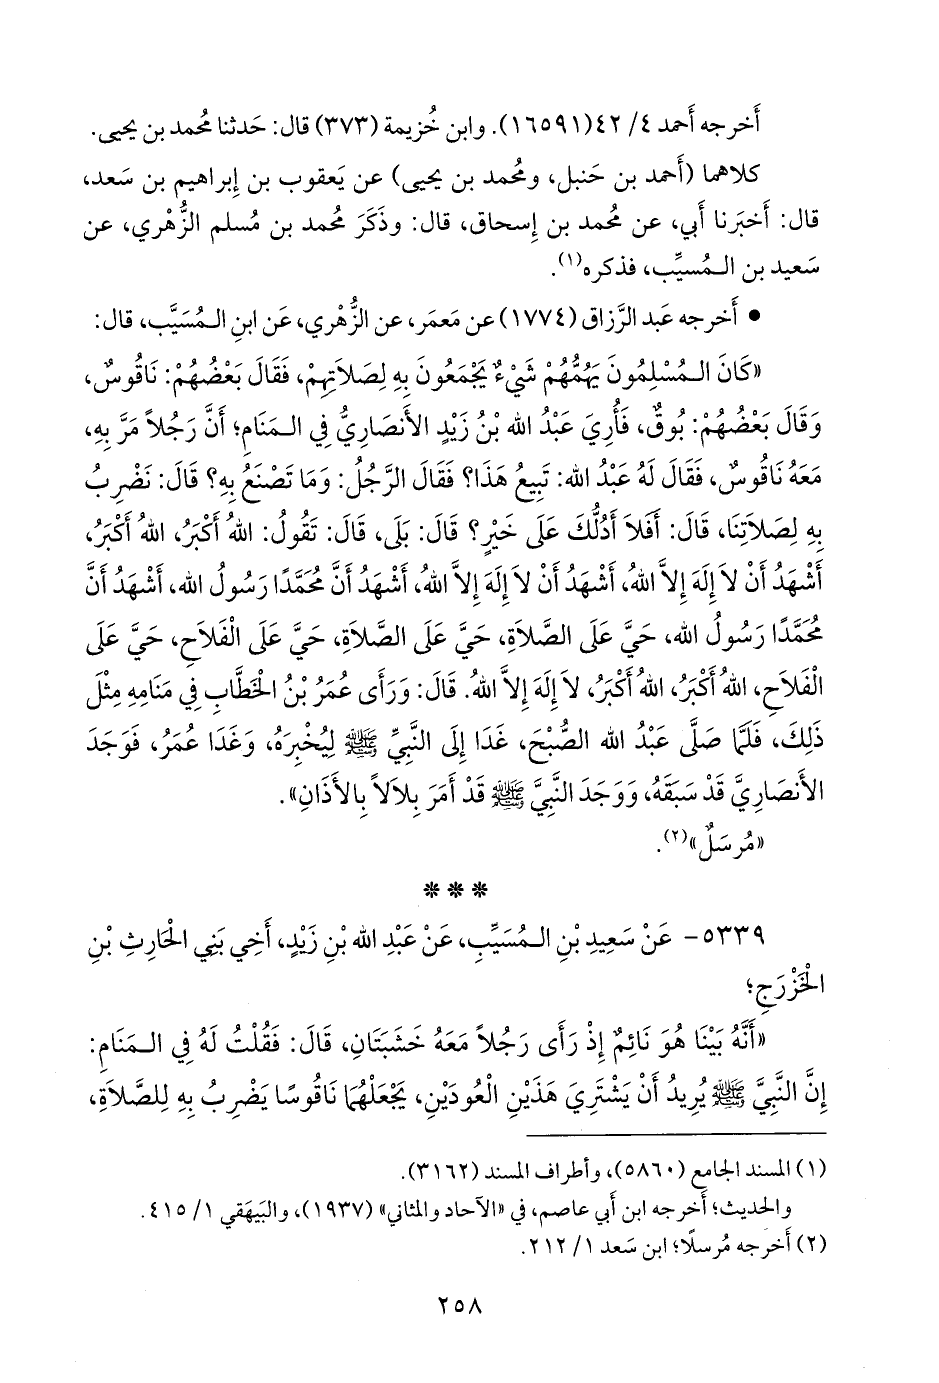 أَخرجه أَحمد ٤/ ٤٢(١٦٥٩١). وابن خُزيمة (٣٧٣) قال: حَدثنا مُحمد بن يحيى.
كلاهما (أَحمد بن حَنبل، ومُحمد بن يحيى) عن يَعقوب بن إِبراهيم بن سَعد،
قال: أَخبَرنا أَبي، عن مُحمد بن إِسحاق، قال: وذَكَرَ مُحمد بن مُسلم الزُّهْري، عن
سَعيد بن الـمُسيِّب، فذكره(١).
• أَخرجه عَبد الرَّزاق (١٧٧٤) عن مَعمَر، عن الزُّهْري، عَن ابنِ الـمُسَيَّب، قال:
«كَانَ الـمُسْلِمُونَ يَهُمُّهُمْ شَيْءٌ يَجْمَعُونَ بِهِ لِصَلاَتِهِمْ، فَقَالَ بَعْضُهُمْ: نَاقُوسٌ،
وَقَالَ بَعْضُهُمْ: بُوقٌ، فَأُرِيَ عَبْدُ الله بْنُ زَيْدٍ الأَنصَارِيُّ فِي الـمَنَامِ؛ أَنَّ رَجُلاً مَرَّ بِهِ،
مَعَهُ نَاقُوسٌ، فَقَالَ لَهُ عَبْدُ الله: تَبِيعُ هَذَا؟ فَقَالَ الرَّجُلُ: وَمَا تَصْنَعُ بِهِ؟ قَالَ: نَضْرِبُ
بِهِ لِصَلاَتِنَا، قَالَ: أَفَلاَ أَدُلُّكَ عَلَى خَيْرٍ؟ قَالَ: بَلَى، قَالَ: تَقُولُ: اللهُ أَكْبَرُ، اللهُ أَكْبَرُ،
أَشْهَدُ أَنْ لاَ إِلَهَ إِلاَّ اللهُ، أَشْهَدُ أَنْ لاَ إِلَهَ إِلاَّ اللهُ، أَشْهَدُ أَنَّ مُحَمَّدًا رَسُولُ الله، أَشْهَدُ أَنَّ
مُحَمَّدًا رَسُولُ الله، حَيَّ عَلَى الصَّلاَةِ، حَيَّ عَلَى الصَّلاَةِ، حَيَّ عَلَى الْفَلاَحِ، حَيَّ عَلَى
الْفَلاَحِ، اللهُ أَكْبَرُ، اللهُ أَكْبَرُ، لاَ إِلَهَ إِلاَّ اللهُ. قَالَ: وَرَأَى عُمَرُ بْنُ الْخَطَّابِ فِي مَنَامِهِ مِثْلَ
ذَلِكَ، فَلَمَّا صَلَّى عَبْدُ الله الصُّبْحَ، غَدَا إِلَى النَّبِيِّ ﷺ لِيُخْبِرَهُ، وَغَدَا عُمَرُ، فَوَجَدَ
الأَنصَارِيَّ قَدْ سَبَقَهُ، وَوَجَدَ النَّبِيَّ ﷺ قَدْ أَمَرَ بِلاَلاً بِالأَذَانِ».
«مُرسَلٌ»(٢).
***
٥٣٣٩- عَنْ سَعِيدِ بْنِ الـمُسَيِّبِ، عَنْ عَبْدِ الله بْنِ زَيْدٍ، أَخِي بَنِي الْحَارِثِ بْنِ
الْخَزْرَجِ؛
«أَنَّهُ بَيْنَا هُوَ نَائِمٌ إِذْ رَأَى رَجُلاً مَعَهُ خَشَبَتَانِ، قَالَ: فَقُلْتُ لَهُ فِي الـمَنَامِ:
إِنَّ النَّبِيَّ ﷺ يُرِيدُ أَنْ يَشْتَرِيَ هَذَيْنِ الْعُودَيْنِ، يَجْعَلْهُمَا نَاقُوسًا يَضْرِبُ بِهِ لِلصَّلاَةِ،
(١) المسند الجامع (٥٨٦٠)، وأطراف المسند (٣١٦٢).
والحديث؛ أَخرجه ابن أَبي عاصم، في «الآحاد والمثاني» (١٩٣٧)، والبَيهَقي ١/ ٤١٥.
(٢) أَخرجه مُرسلًا؛ ابن سَعد ١/ ٢١٢.
٢٥٨